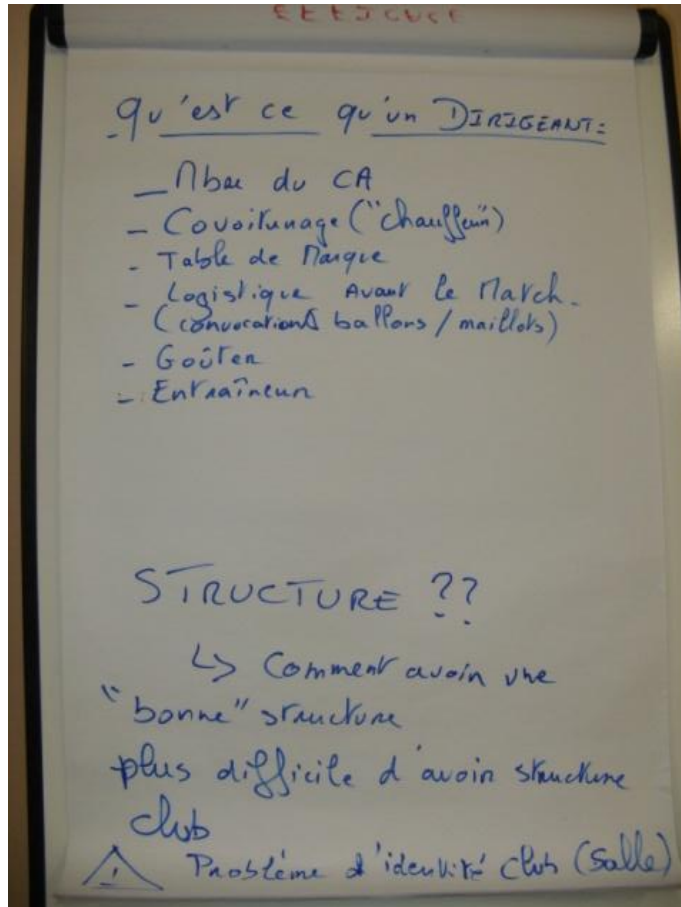 Qu'est ce qu'un DIRIGEANT:
- Mbre du CA
- Covoiturage ("chauffeur")
- Table de Marque
- Logistique Avant le Match.
(convocations ballons / maillots)
- Goûter
- Entraîneur
STRUCTURE ??
↳ Comment avoir une
"bonne" structure
plus difficile d'avoir structure
club
⚠ Problème d'identité club (salle)